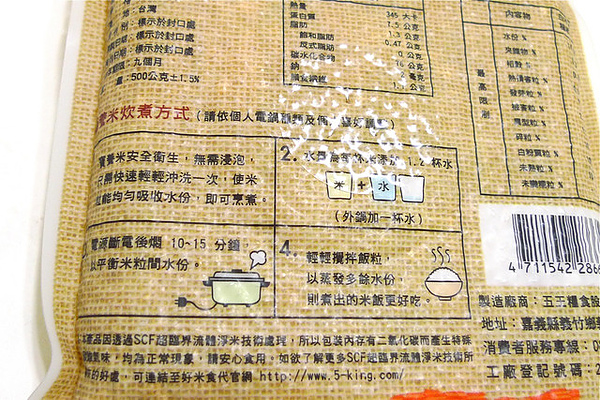 地：台灣
：標示於封口處
：標示於封口處
：九個月
量：500公克±1.5%
熱量
蛋白質
脂肪
飽和脂肪
反式脂肪
碳水化合物
鈉
膳食纖維
345 大卡
公克
1.5 公克
1.3 公克
0.47 公克
0 公克
公克
2 毫克
公克
內容物
最高限制
水份 %
夾雜物 %
稻穀 %
熱損害粒 %
發芽粒 %
被害粒 %
異型粒 %
碎粒 %
白粉質粒 %
未熟粒 %
米炊煮方式 (請依個人電鍋
養米安全衛生，無需浸泡，
只需快速輕輕沖洗一次，使米
能均勻吸收水份，即可烹煮。
2. 1.2 杯水
米 + 水
(外鍋加一杯水)
電源斷電後燜 10~15 分鐘
以平衡米粒間水份。
4. 輕輕攪拌飯粒，
以蒸發多餘水份，
則煮出的米飯更好吃。
4 711542 286
製造廠商：五王糧食股
地址：嘉義縣義竹鄉
消費者服務專線：0
工廠登記號：2
產品因透過SCF超臨界流體淨米技術處理，所以包裝內存有二氧化碳而產生特殊
氣味，均為正常現象，請安心食用。如欲了解更多SCF超臨界流體淨米技術所
的好處，可連結至好米食代官網 http://www.5-king.com/